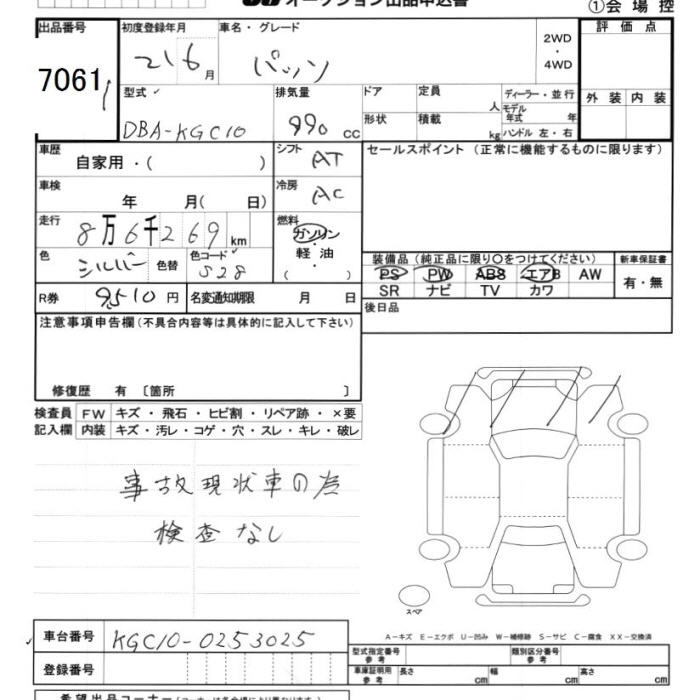 オークション出品申込書
①会場控
出品番号 初度登録年月 車名・グレード 2WD ・ 4WD 評価点
7061 21 6 月 パッソ
型式 排気量 ドア 定員 人 ディーラー・並行 外装 内装
DBA-KGC10 990 cc 形状 積載 kg モデル年式 年
ハンドル 左・右
車歴 自家用・( ) シフト AT セールスポイント (正常に機能するものに限ります)
車検 年 月( 日) 冷房 AC
走行 8万6千269 km 燃料 ガソリン・軽油・( )
色 シルバー 色替 色コード S28
装備品 (純正品に限り○をつけてください) 新車保証書
PS PW ABS エアB AW 有・無
SR ナビ TV カワ
R券 9,510円 名変通知期限 月 日 後日品
注意事項申告欄 (不具合内容等は具体的に記入して下さい)
修復歴 有 〔箇所 〕
検査員 FW キズ・飛石・ヒビ割・リペア跡・×要
記入欄 内装 キズ・汚レ・コゲ・穴・スレ・キレ・破レ
事故現状車の為
検査なし
スペア
A-キズ E-エクボ U-凹み W-補修跡 S-サビ C-腐食 XX-交換済
車台番号 KGC10-0253025
型式指定番号 参考 類別区分番号 参考
登録番号 車庫証明用 参考 長さ cm 幅 cm 高さ cm
希望出品コーナー